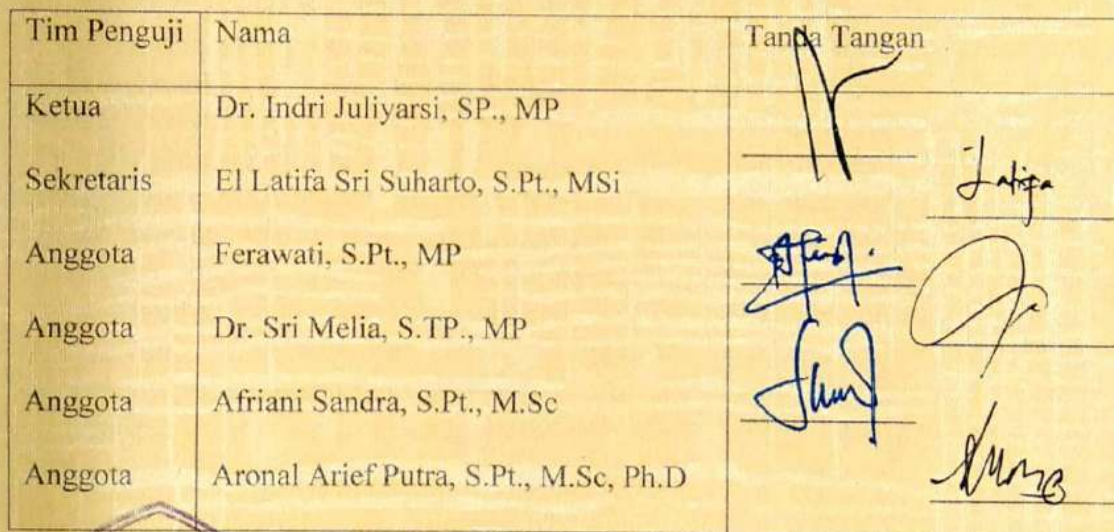 Tim Penguji Nama Tanda Tangan
Ketua Dr. Indri Juliyarsi, SP., MP
Sekretaris El Latifa Sri Suharto, S.Pt., MSi
Latifa
Anggota Ferawati, S.Pt., MP
Anggota Dr. Sri Melia, S.TP., MP
Anggota Afriani Sandra, S.Pt., M.Sc
Anggota Aronal Arief Putra, S.Pt., M.Sc, Ph.D